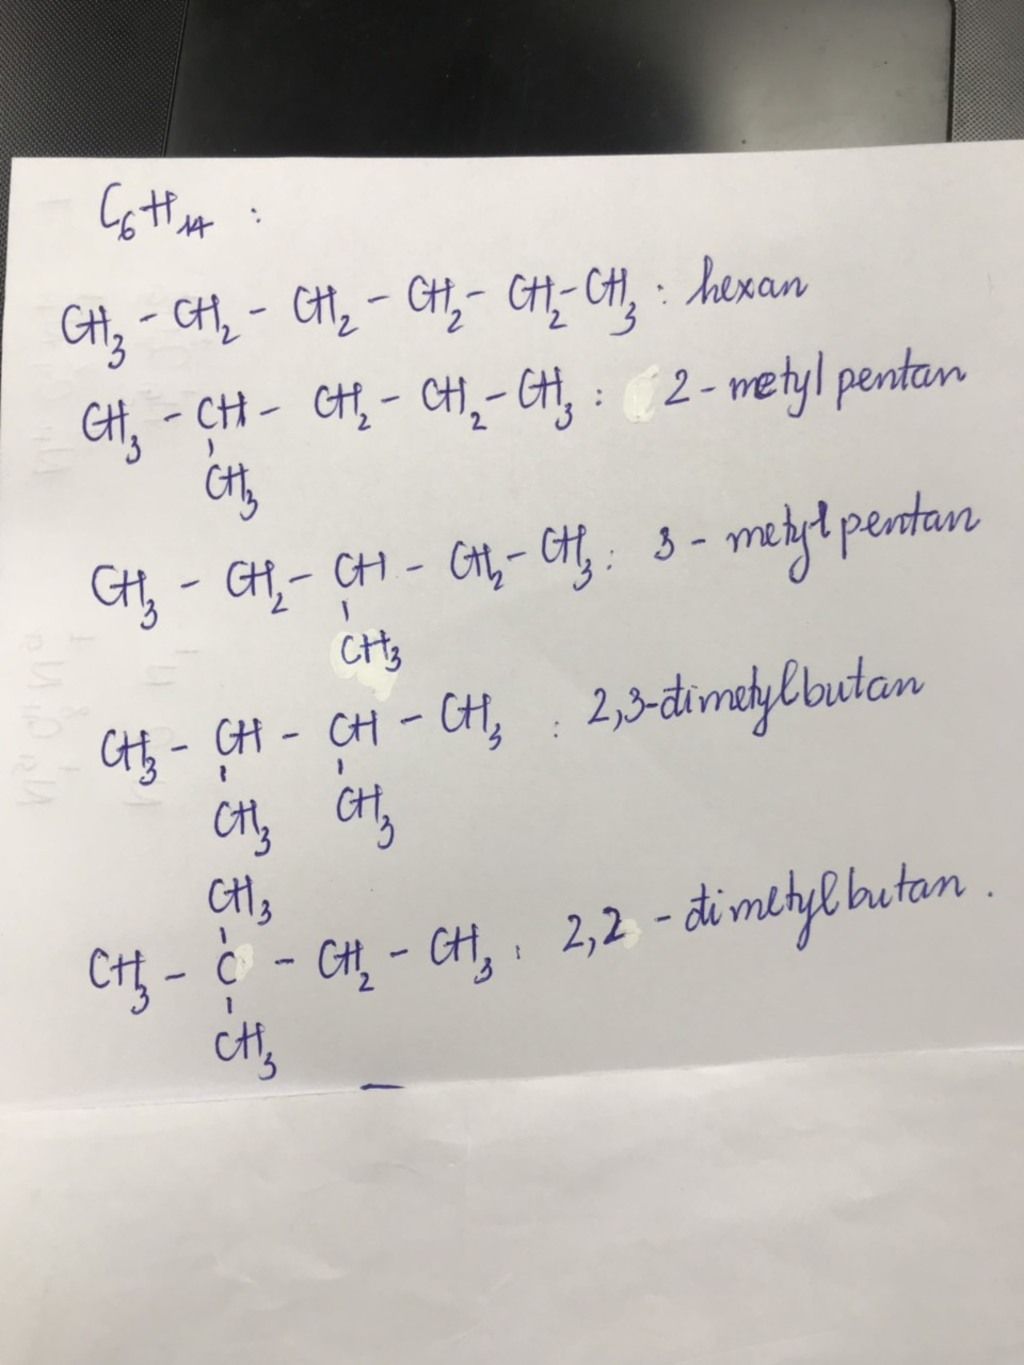 C₆H₁₄ :
CH₃ - CH₂ - CH₂ - CH₂ - CH₂ - CH₃ : hexan
CH₃ - CH - CH₂ - CH₂ - CH₃ : 2 - metyl pentan
CH₃
CH₃ - CH₂ - CH - CH₂ - CH₃ : 3 - metyl pentan
CH₃
CH₃ - CH - CH - CH₃ : 2,3-dimetylbutan
CH₃ CH₃
CH₃
CH₃ - C - CH₂ - CH₃ : 2,2 - dimetylbutan .
CH₃